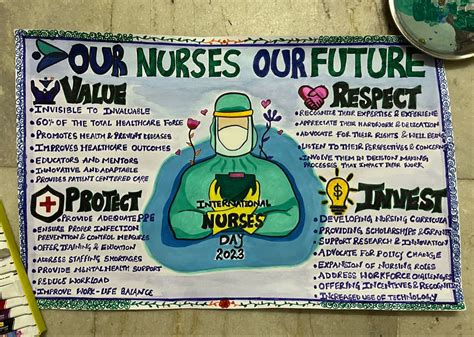 OUR NURSES OUR FUTURE
VALUE
INVISIBLE TO INVALUABLE
60% OF THE TOTAL HEALTHCARE FORCE
PROMOTES HEALTH & PREVENTS DISEASES
IMPROVES HEALTHCARE OUTCOMES
EDUCATORS AND MENTORS
INNOVATIVE AND ADAPTABLE
PROVIDES PATIENT CENTERED CARE
RESPECT
RECOGNIZE THEIR EXPERTISE & EXPERIENCE
APPRECIATE THEIR HARDWORK & DEDICATION
ADVOCATE FOR THEIR RIGHTS & WELL BEING
LISTEN TO THEIR PERSPECTIVES & CONCERN
INVOLVE THEM IN DECISION MAKING
PROCESSES THAT IMPACT THEIR WORK
INTERNATIONAL
NURSES
DAY
2023
PROTECT
PROVIDE ADEQUATE PPE
ENSURE PROPER INFECTION
PREVENTION & CONTROL MEASURES
OFFER TRAINING & EDUCATION
ADDRESS STAFFING SHORTAGES
PROVIDE MENTAL HEALTH SUPPORT
REDUCE WORKLOAD
IMPROVE WORK-LIFE BALANCE
INVEST
DEVELOPING NURSING CURRICULA
PROVIDING SCHOLARSHIPS & GRANTS
SUPPORT RESEARCH & INNOVATION
ADVOCATE FOR POLICY CHANGE
EXPANSION OF NURSING ROLES
ADDRESS WORKFORCE CHALLENGES
OFFERING INCENTIVES & RECOGNITION
INCREASED USE OF TECHNOLOGY